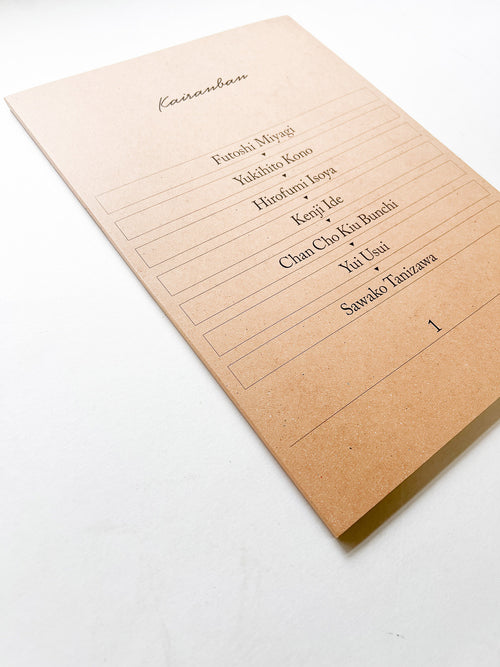 Kairanban
Futoshi Miyagi
▼
Yukihito Kono
▼
Hirofumi Isoya
▼
Kenji Ide
▼
Chan Cho Kiu Bunchi
▼
Yui Usui
▼
Sawako Tanizawa
1